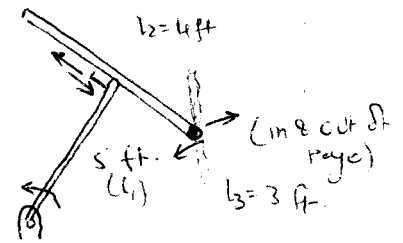 l2 = 4ft
(in & out of
page)
5 ft.
(l1)
l3 = 3 ft.